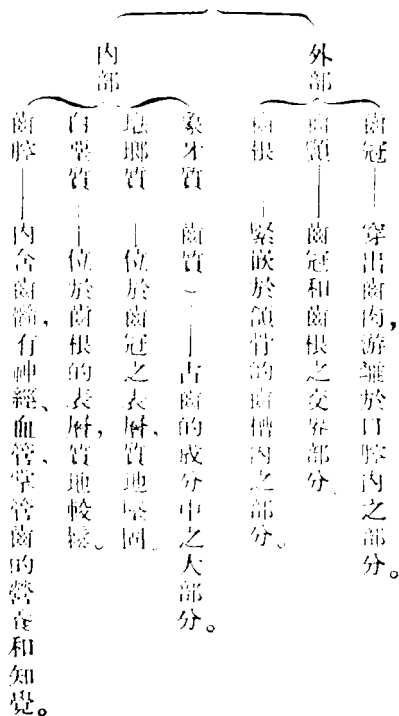 外部
齒冠——穿出齒肉，游離於口腔內之部分。
齒頸——齒冠和齒根之交界部分。
齒根——緊嵌於頜骨的齒槽內之部分。
內部
象牙質（齒質）——占齒的成分中之大部分。
琺瑯質——位於齒冠之表層，質地堅固。
白堊質——位於齒根的表層，質地較鬆。
齒腔——內含齒髓，有神經、血管，掌管齒的營養和知覺。